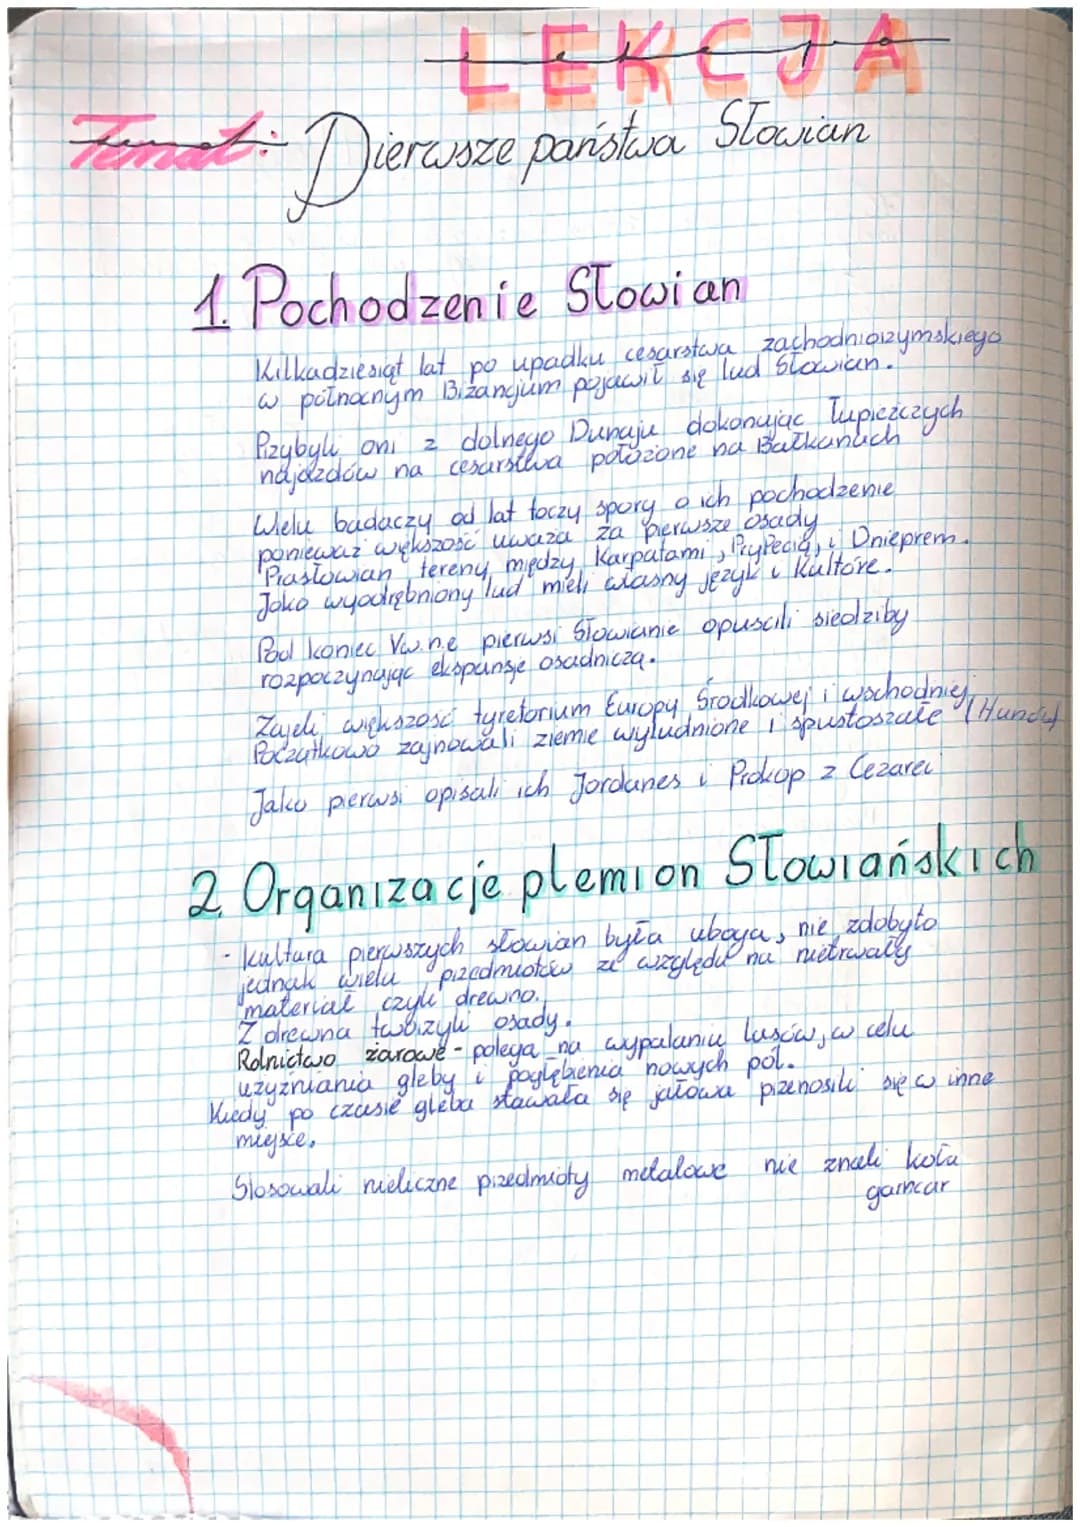 LEKCJA
Temat: Pierwsze państwa Słowian
1. Pochodzenie Słowian
Kilkadziesiąt lat po upadku cesarstwa zachodniorzymskiego
w północnym Bizancjum pojawił się lud Słowian.
Przybyli oni z dolnego Dunaju dokonując łupieżczych
najazdów na cesarstwa położone na Bałkanach
Wielu badaczy od lat toczy spory o ich pochodzenie
ponieważ większość uważa za pierwsze osady
Prasłowian tereny między Karpatami, Prypecią, i Dnieprem.
Jako wyodrębniony lud mieli własny język i kulture.
Pod koniec V w. n.e pierwsi Słowianie opuscili siedziby
rozpoczynając ekspansje osadniczą.
Zajeli większość tyretorium Europy Środkowej i wschodniej.
Początkowo zajnowali ziemie wyludnione i spustoszałe (Hunów)
Jako pierwsi opisali ich Jordanes i Prokop z Cezarei
2. Organizacje plemion Słowiańskich
- kultura pierwszych słowian była uboga, nie zdobyto
jednak wielu przedmiotów ze względu na nietrwały
materiał czyli drewno.
Z drewna tworzyli osady.
Rolnictwo żarowe - polega na wypalaniu lasów, w celu
użyźniania gleby i pogłębienia nowych pól.
Kiedy po czasie gleba stawała się jałowa przenosili się w inne
miejsce.
Stosowali nieliczne przedmioty metalowe nie znali koła
garncar